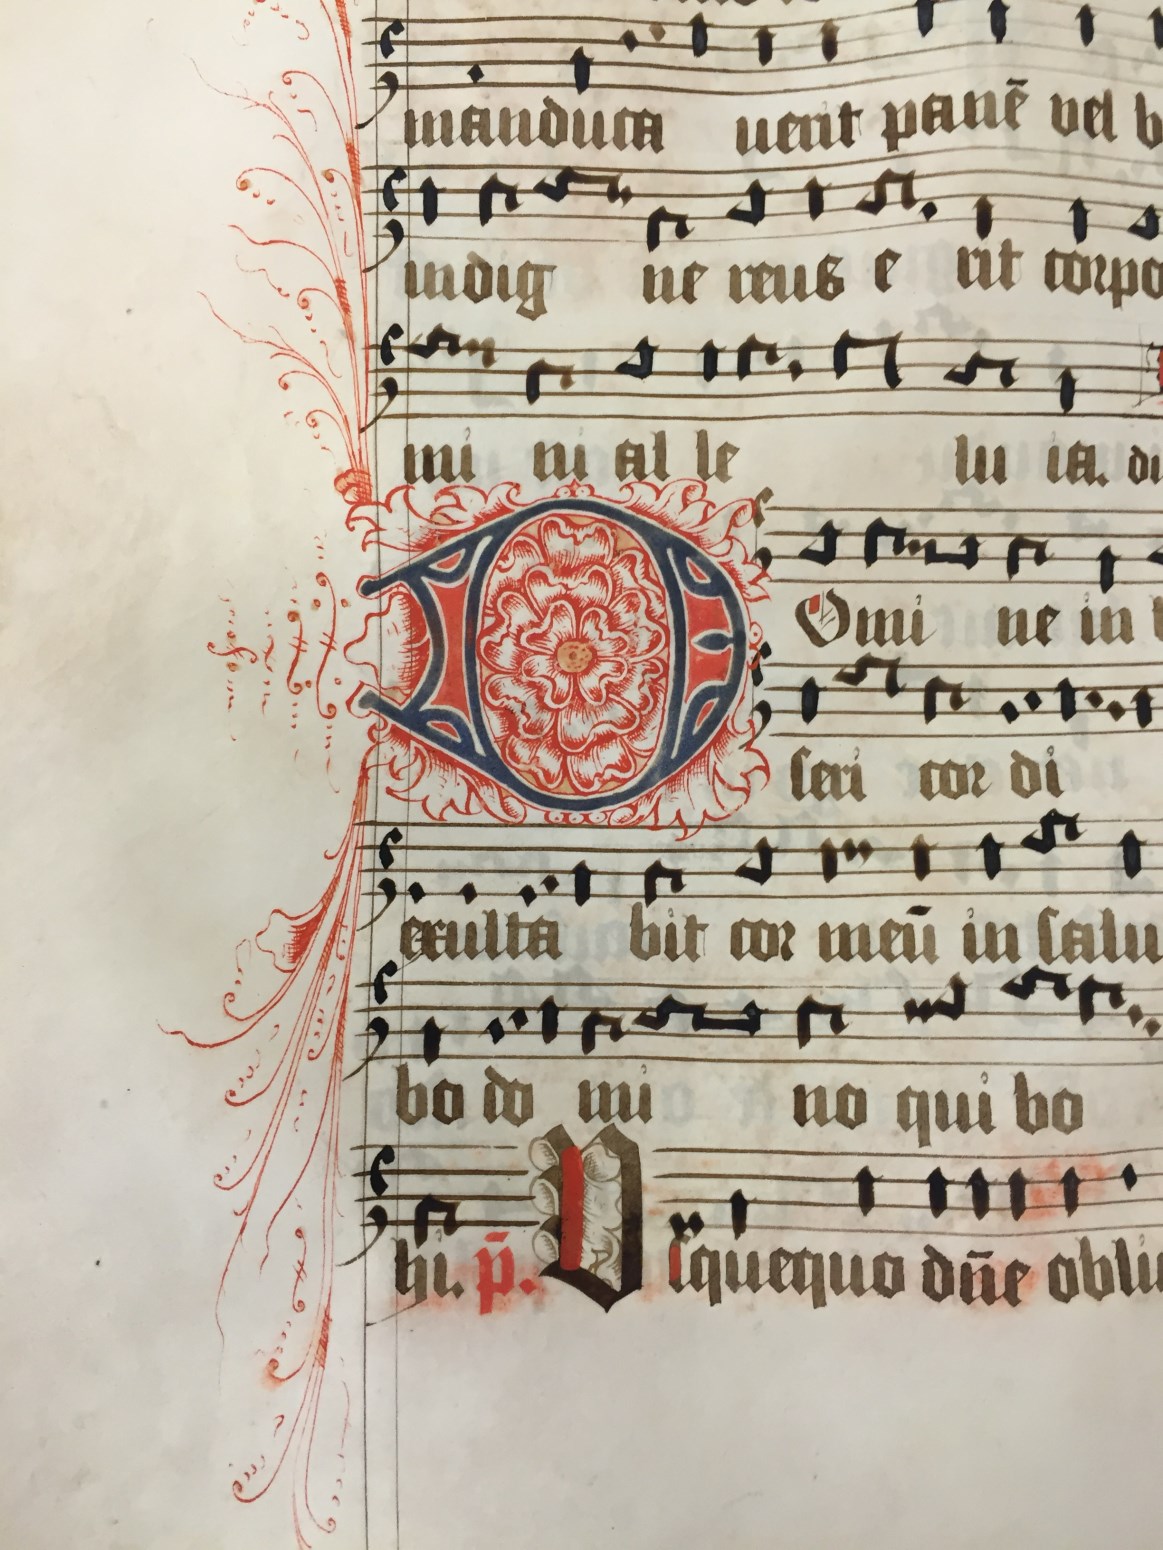 manduca uerit panē vel
indig ne reus e rit corpo
mi ni al le lu ia. di
D Omi ne in
seri cor di
exulta bit cor meū in salu
bo do mi no qui bo
hi. p̄. V squequo dn̄e obliu